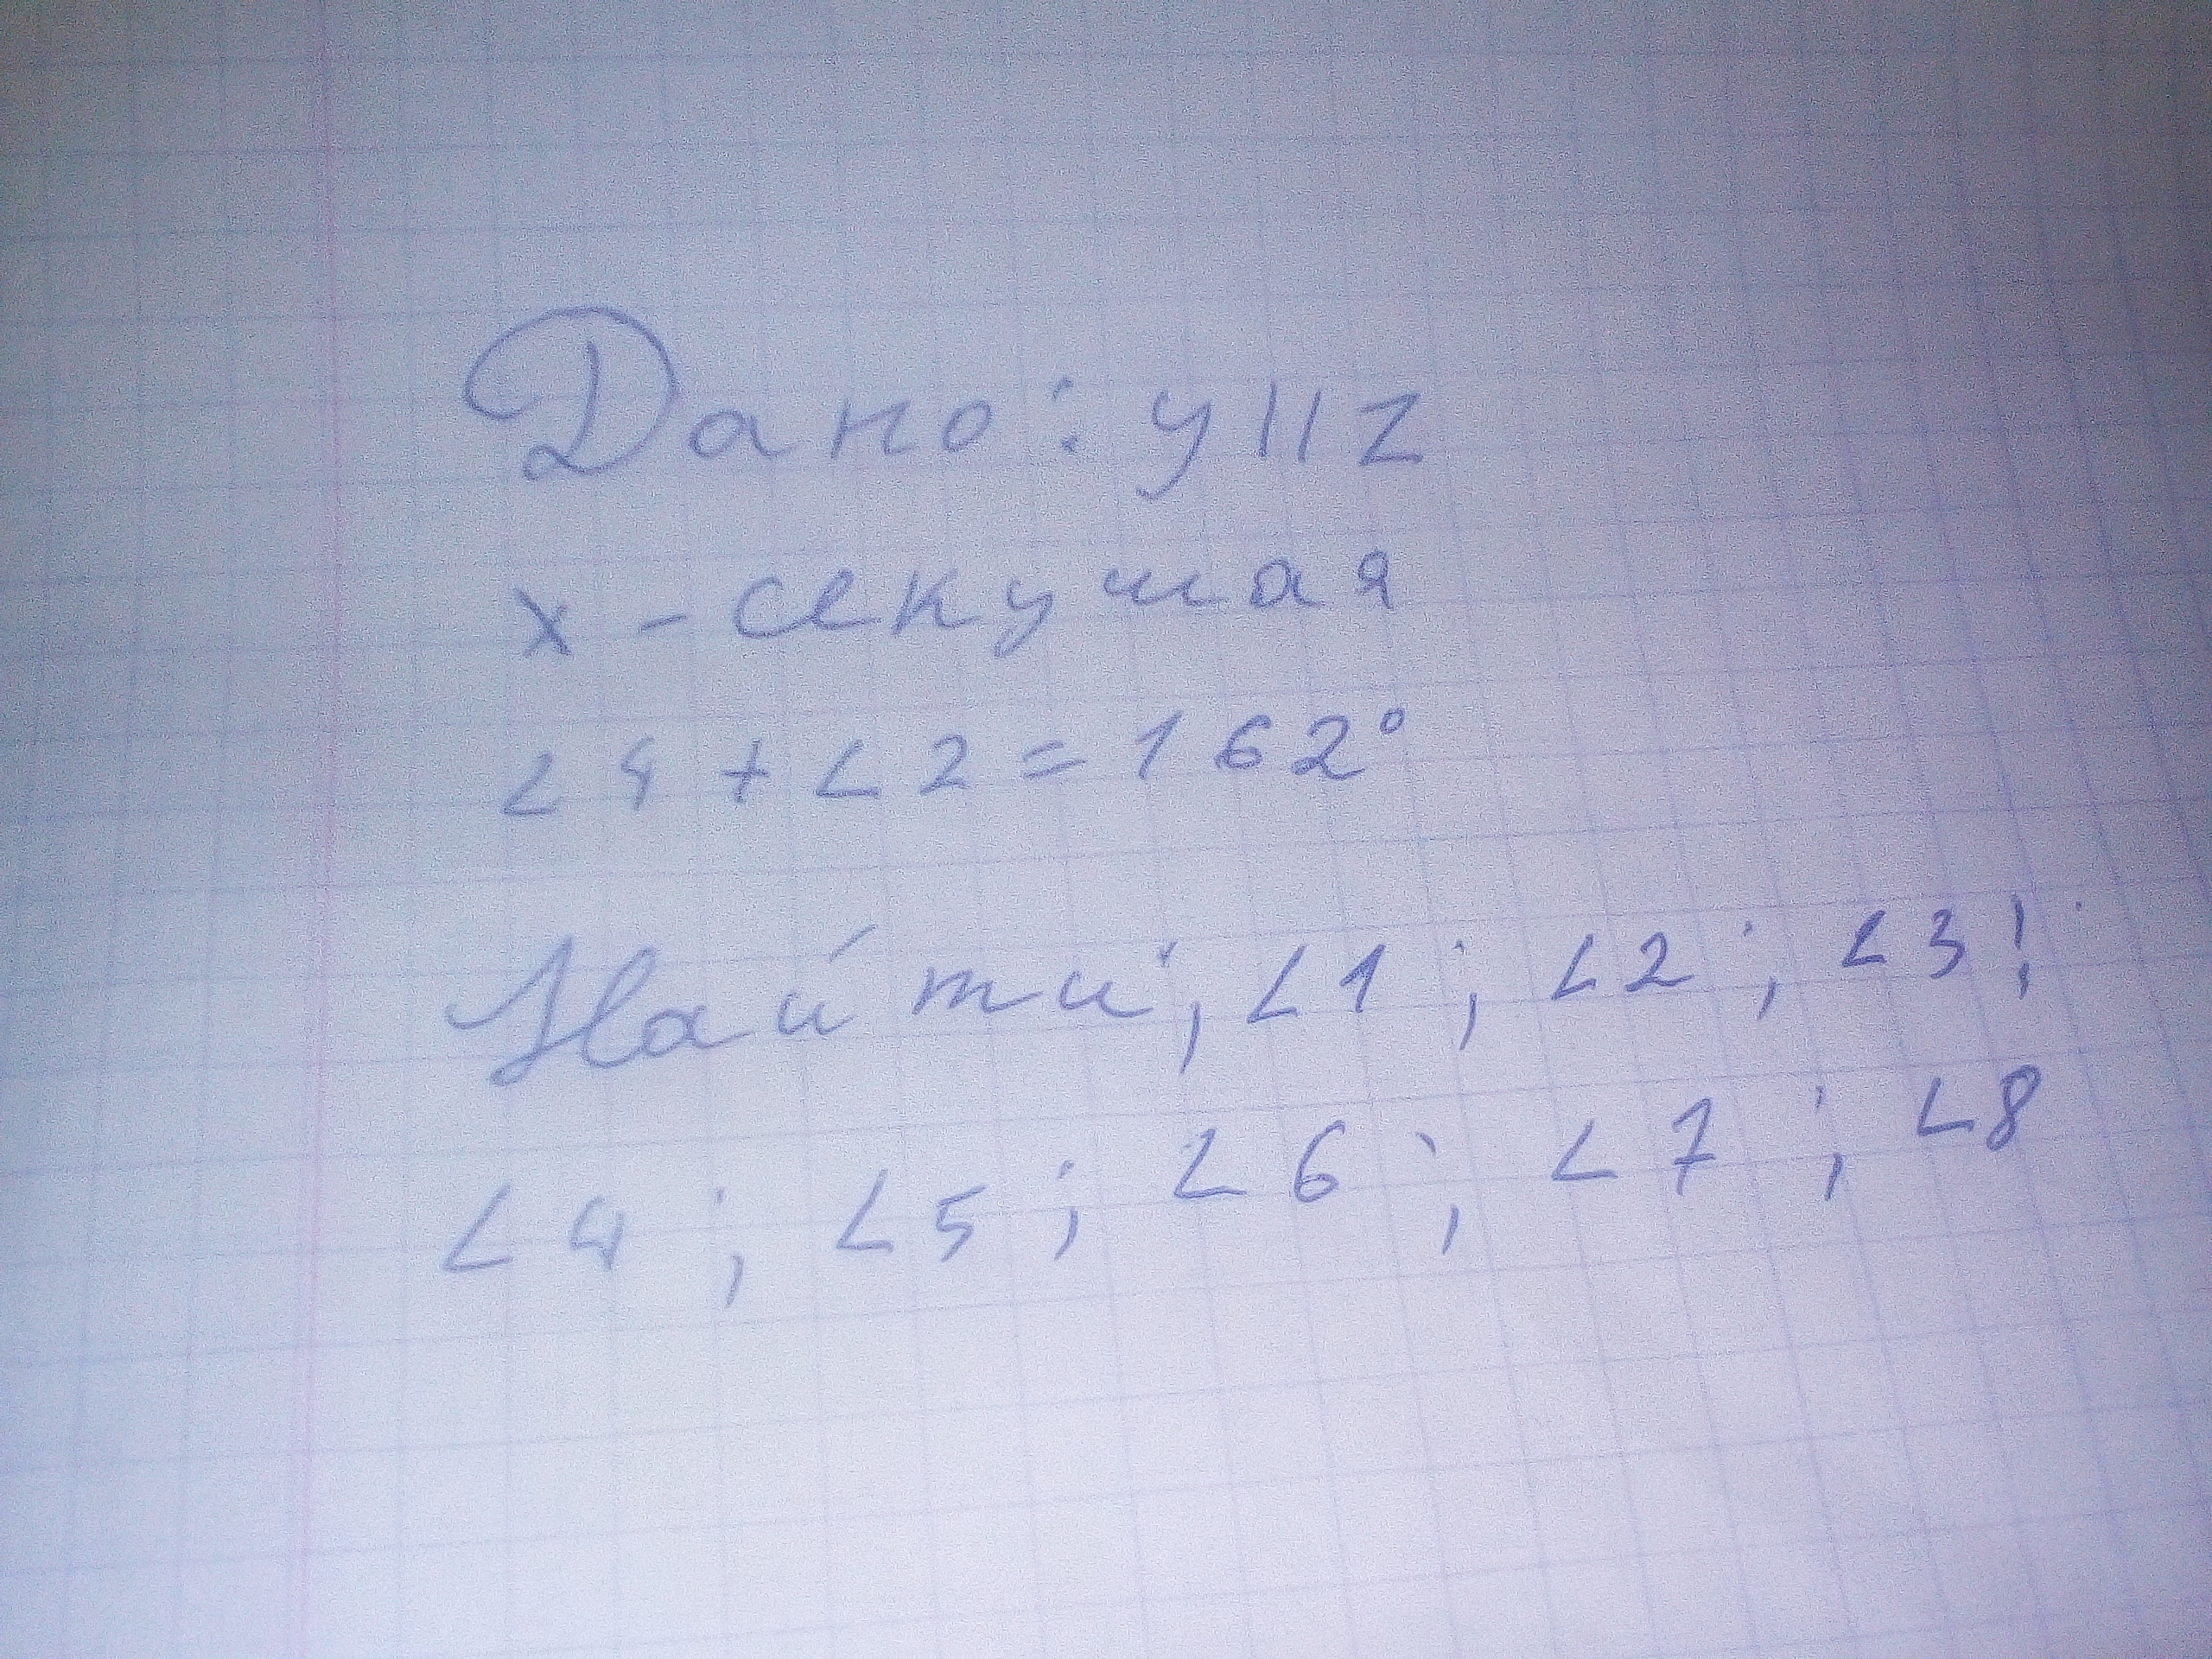 Дано: y || z
x - секущая
∠4 + ∠2 = 162°
Найти; ∠1; ∠2; ∠3;
∠4; ∠5; ∠6; ∠7; ∠8